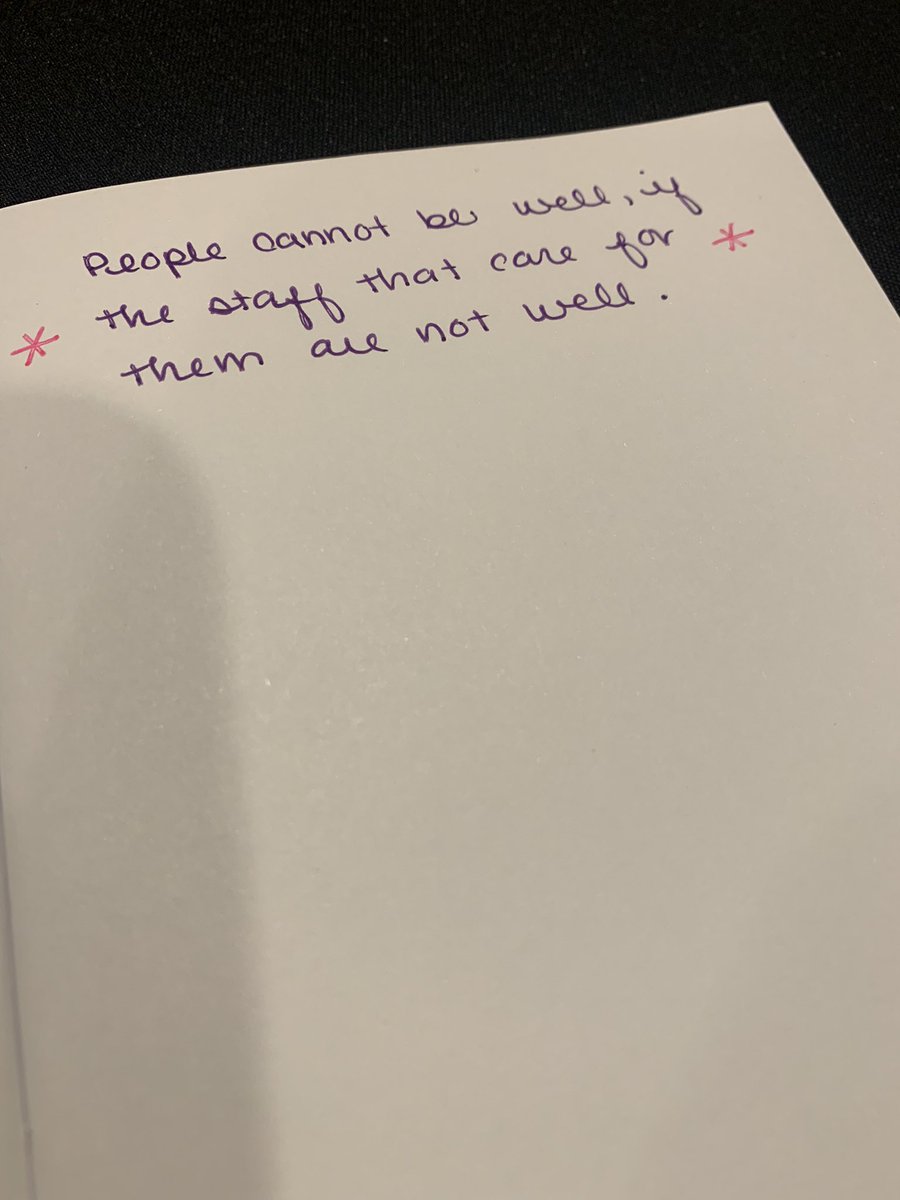 People cannot be well, if
the staff that care for *
* them are not well.